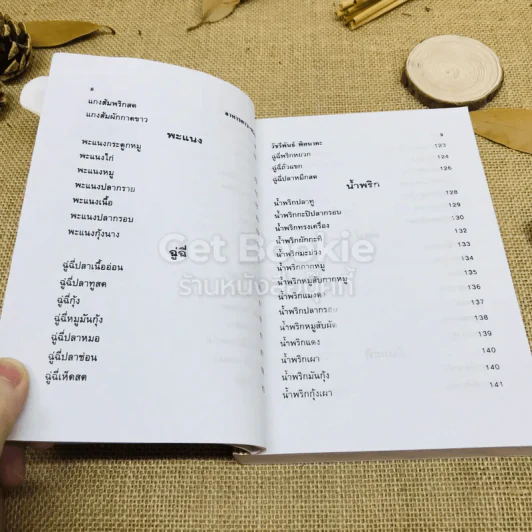 ๘
แกงส้มพริกสด
แกงส้มผักกาดขาว
พะแนง
พะแนงกระดูกหมู
พะแนงไก่
พะแนงหมู
พะแนงปลาราย
พะแนงเนื้อ
พะแนงปลากรอบ
พะแนงกุ้งนาง
ฉู่ฉี่
ฉู่ฉี่ปลาเนื้ออ่อน
ฉู่ฉี่ปลาทูสด
ฉู่ฉี่กุ้ง
ฉู่ฉี่หมูมันกุ้ง
ฉู่ฉี่ปลาหมอ
ฉู่ฉี่ปลาช่อน
ฉู่ฉี่เห็ดสด
9
ฉู่ฉี่พริกหยวก 123
ฉู่ฉี่ถั่วแขก 125
ฉู่ฉี่ปลาหมึกสด 126
น้ำพริก
น้ำพริกปลาทู 128
น้ำพริกกะปิปลากรอบ 129
น้ำพริกทรงเครื่อง 130
น้ำพริกผักกะทิ 132
น้ำพริกมะม่วง 133
น้ำพริกกากหมู 134
น้ำพริกหมูสับกากหมู 135
น้ำพริกแมงดา 136
น้ำพริกปลากรอบ 137
น้ำพริกหมูสับผัด 138
น้ำพริกแดง 139
น้ำพริกเผา 140
น้ำพริกมันกุ้ง 140
น้ำพริกกุ้งเผา 141
Get Bookie
ร้านหนังสือบุ๊คกี้